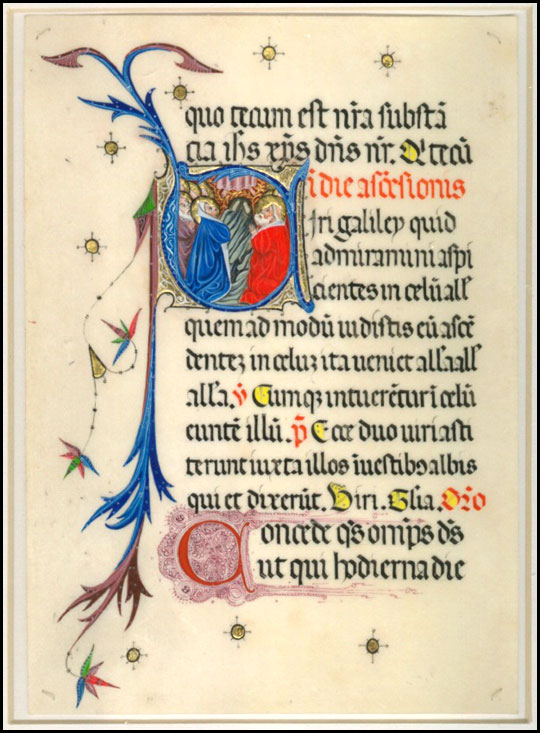 quo tecum est nr̄a substā
cia ih̄s xp̄s dn̄s nr̄. Q' tecū
ī die ascēsionis
Viri galiley quid
admiramini aspi
cientes in celū all'
quem ad modū uidistis eū ascē
dentez in celuz ita veniet all'a all'
all'a. v̄ Cumqꝫ intuerētur ī celū
euntē illū. p̄ Ecce duo uiri asti
terunt iuxta illos ī uestibꝫ albis
qui et dixerūt. Viri. Gl'ia. Or̄o
Concede q̄s omp̄s ds̄
ut qui hodierna die